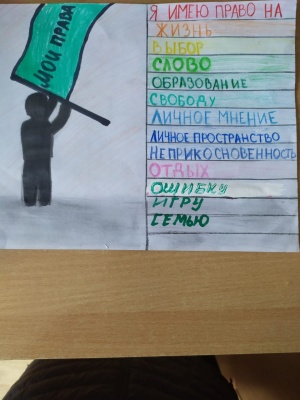 МОИ ПРАВА
Я ИМЕЮ ПРАВО НА
ЖИЗНЬ
ВЫБОР
СЛОВО
ОБРАЗОВАНИЕ
СВОБОДУ
ЛИЧНОЕ МНЕНИЕ
ЛИЧНОЕ ПРОСТРАНСТВО
НЕПРИКОСНОВЕННОСТЬ
ОТДЫХ
ОШИБКУ
ИГРУ
СЕМЬЮ